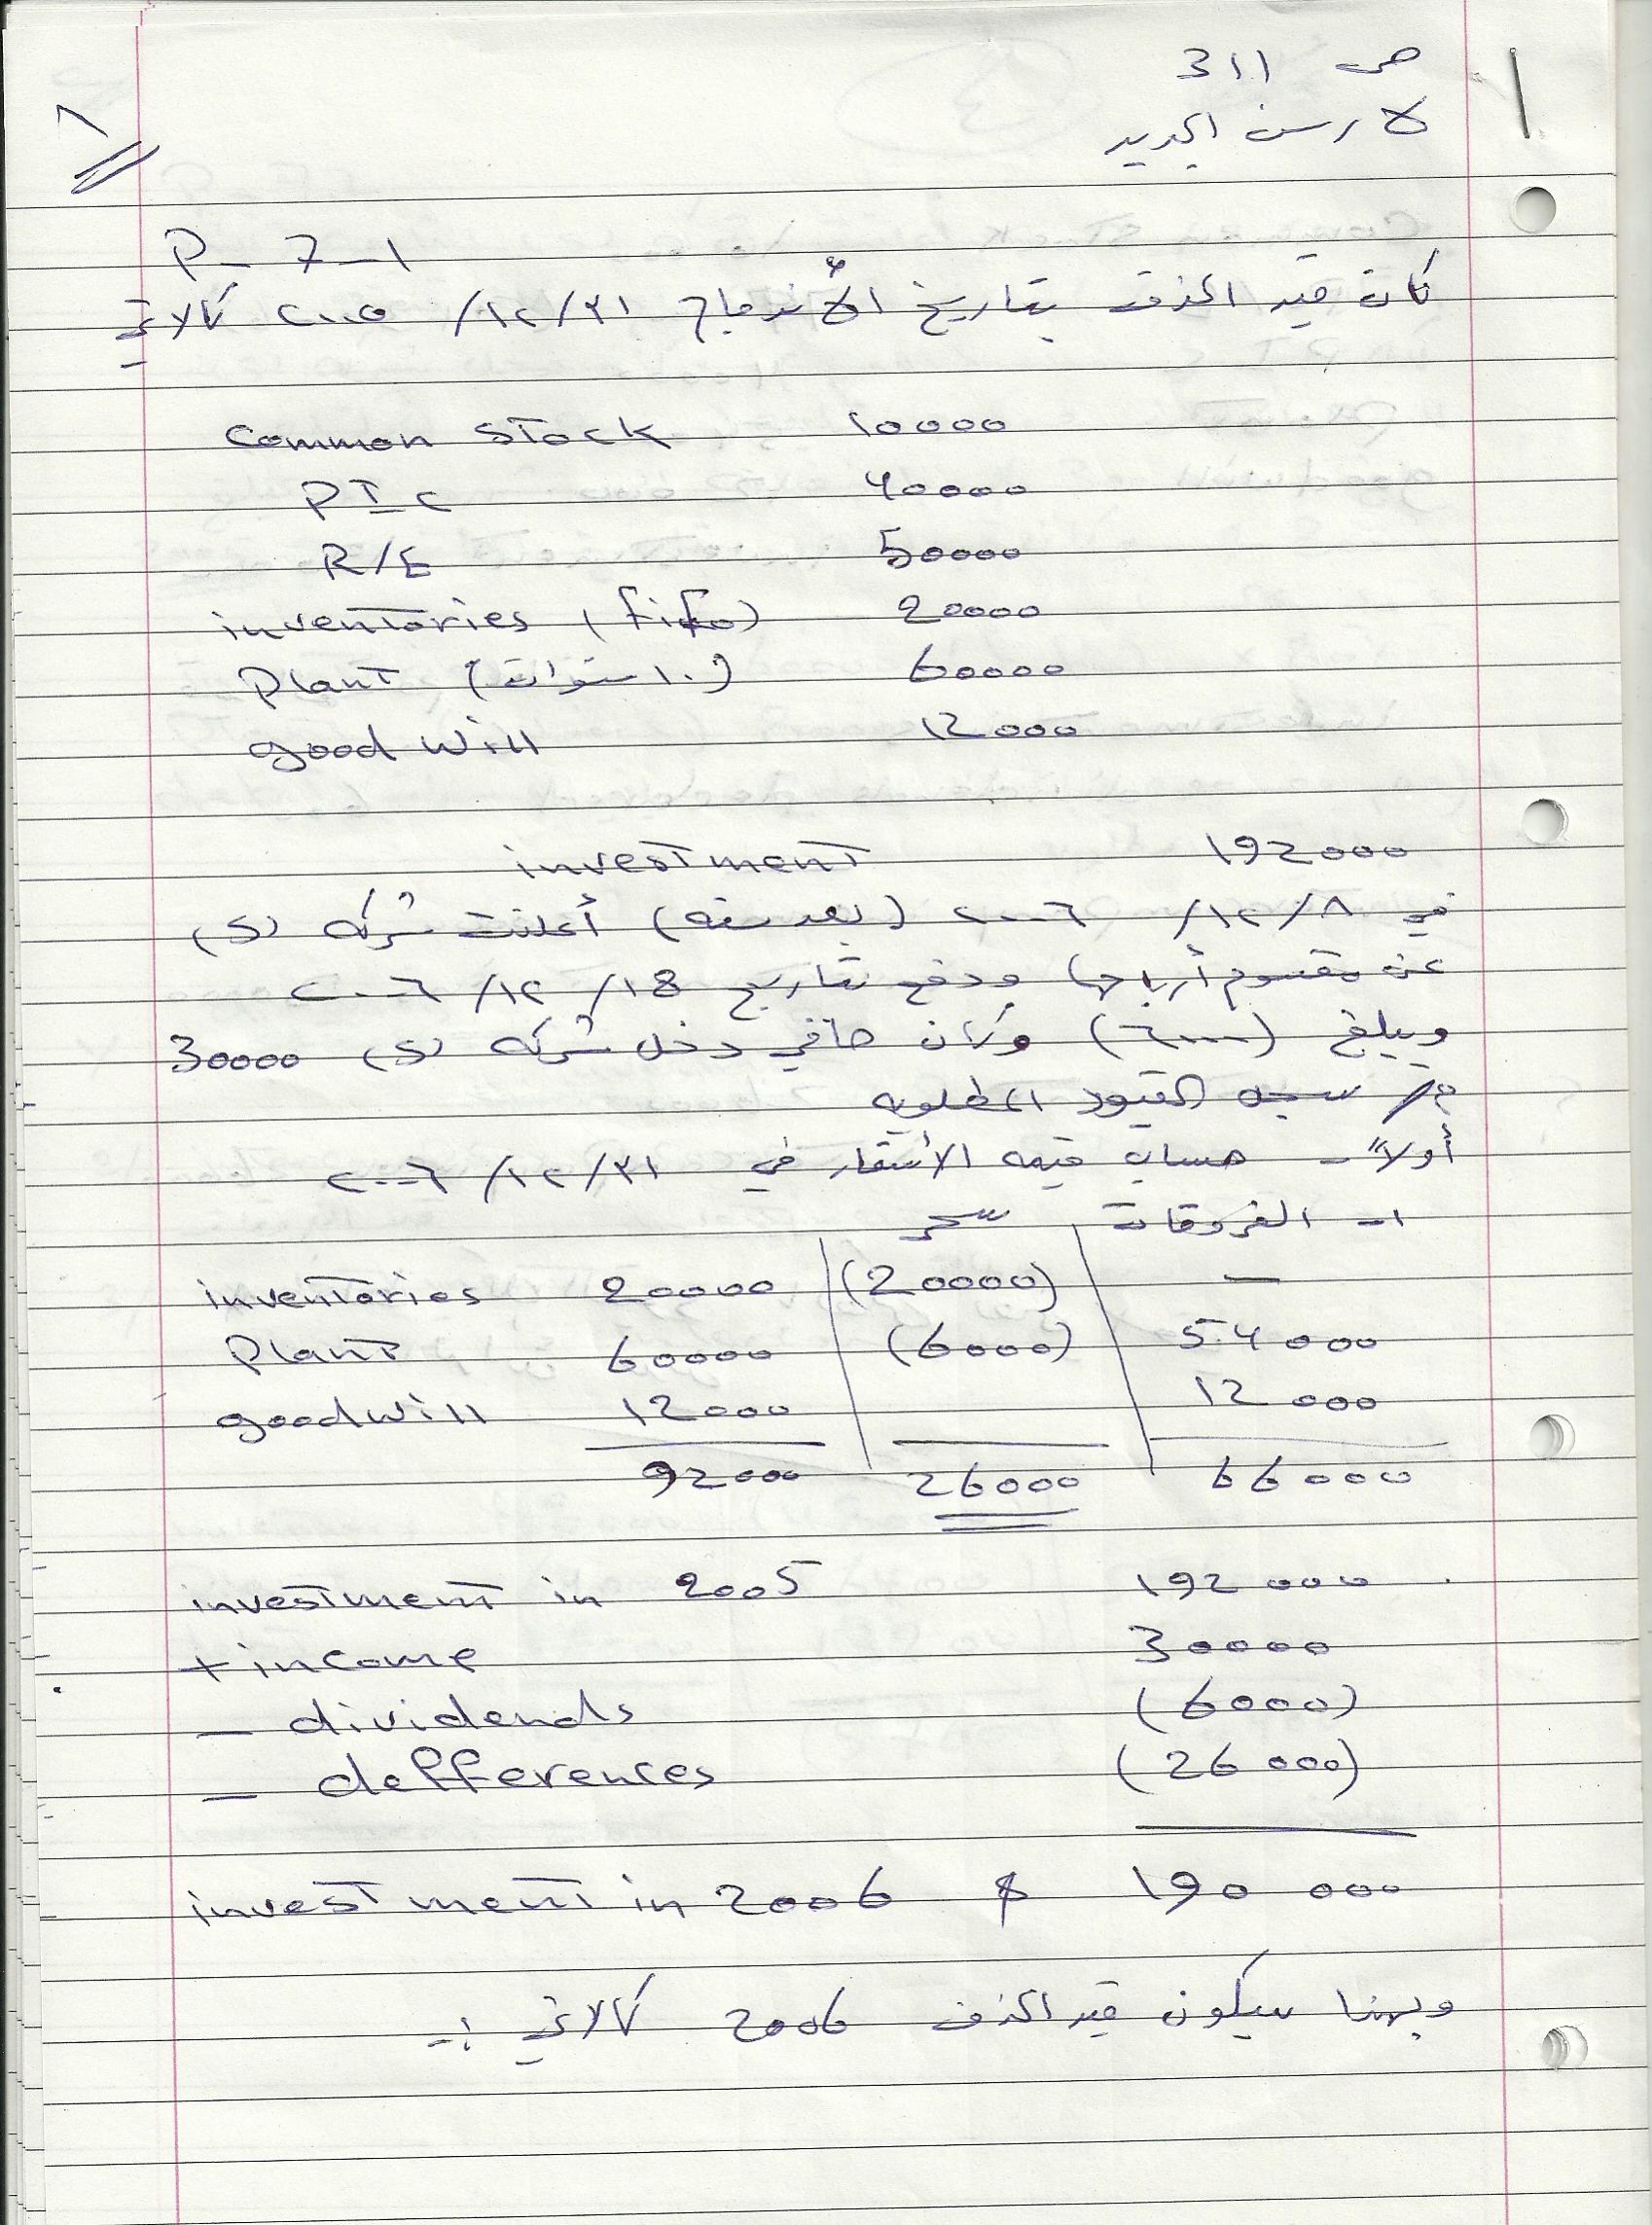 ص 311
لارسن الجديد
١
P - 7 - 1
كان قيد الحذف بتاريخ الأندماج ٣١/١٢/ ٢٠٠٥ كالاتي
Common stock 10000
PIC 40000
R/E 50000
inventories (fifo) 20000
Plant (١٠ سنوات) 60000
good will 12000
investment 192000
في ٨/١٢/ ٢٠٠٦ (بعد سنه) أعلنت شركه (S)
عن مقسوم أرباحها ودفع بتاريخ 18/١٢/ ٢٠٠٦
ويبلغ (٦٠٠٠) وكان صافي دخل شركه (S) 30000
م/ سجل القيود المطلوبه
أولاً - حساب قيمه الأستثمار في ٣١/١٢/ ٢٠٠٦
١- الفروقات
inventories 20000 (20000) —
Plant 60000 (6000) 54000
goodwill 12000 12000
92000 26000 66000
investment in 2005 192000
+ income 30000
- dividends (6000)
- defferences (26000)
investment in 2006 $ 190 000
وبهذا سيكون قيد الحذف 2006 كالاتي :-